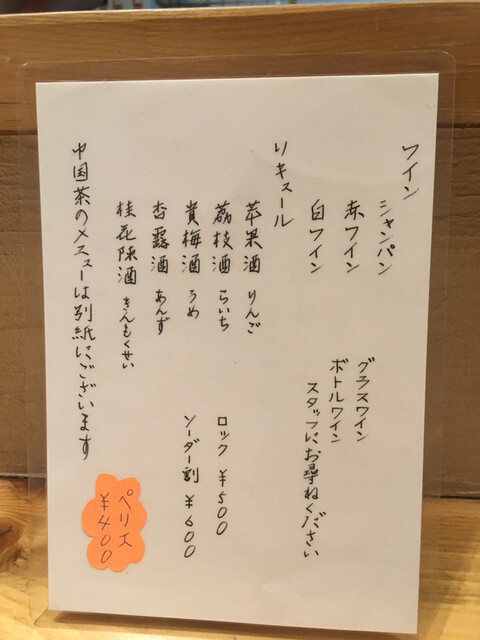 ワイン
シャンパン
赤ワイン
白ワイン
グラスワイン
ボトルワイン
スタッフにお尋ねください
リキュール
苹果酒 りんご
茘枝酒 らいち
貴梅酒 うめ
杏露酒 あんず
桂花陳酒 きんもくせい
ロック ¥500
ソーダー割 ¥600
中国茶のメニューは別紙にございます
ペリエ
¥400